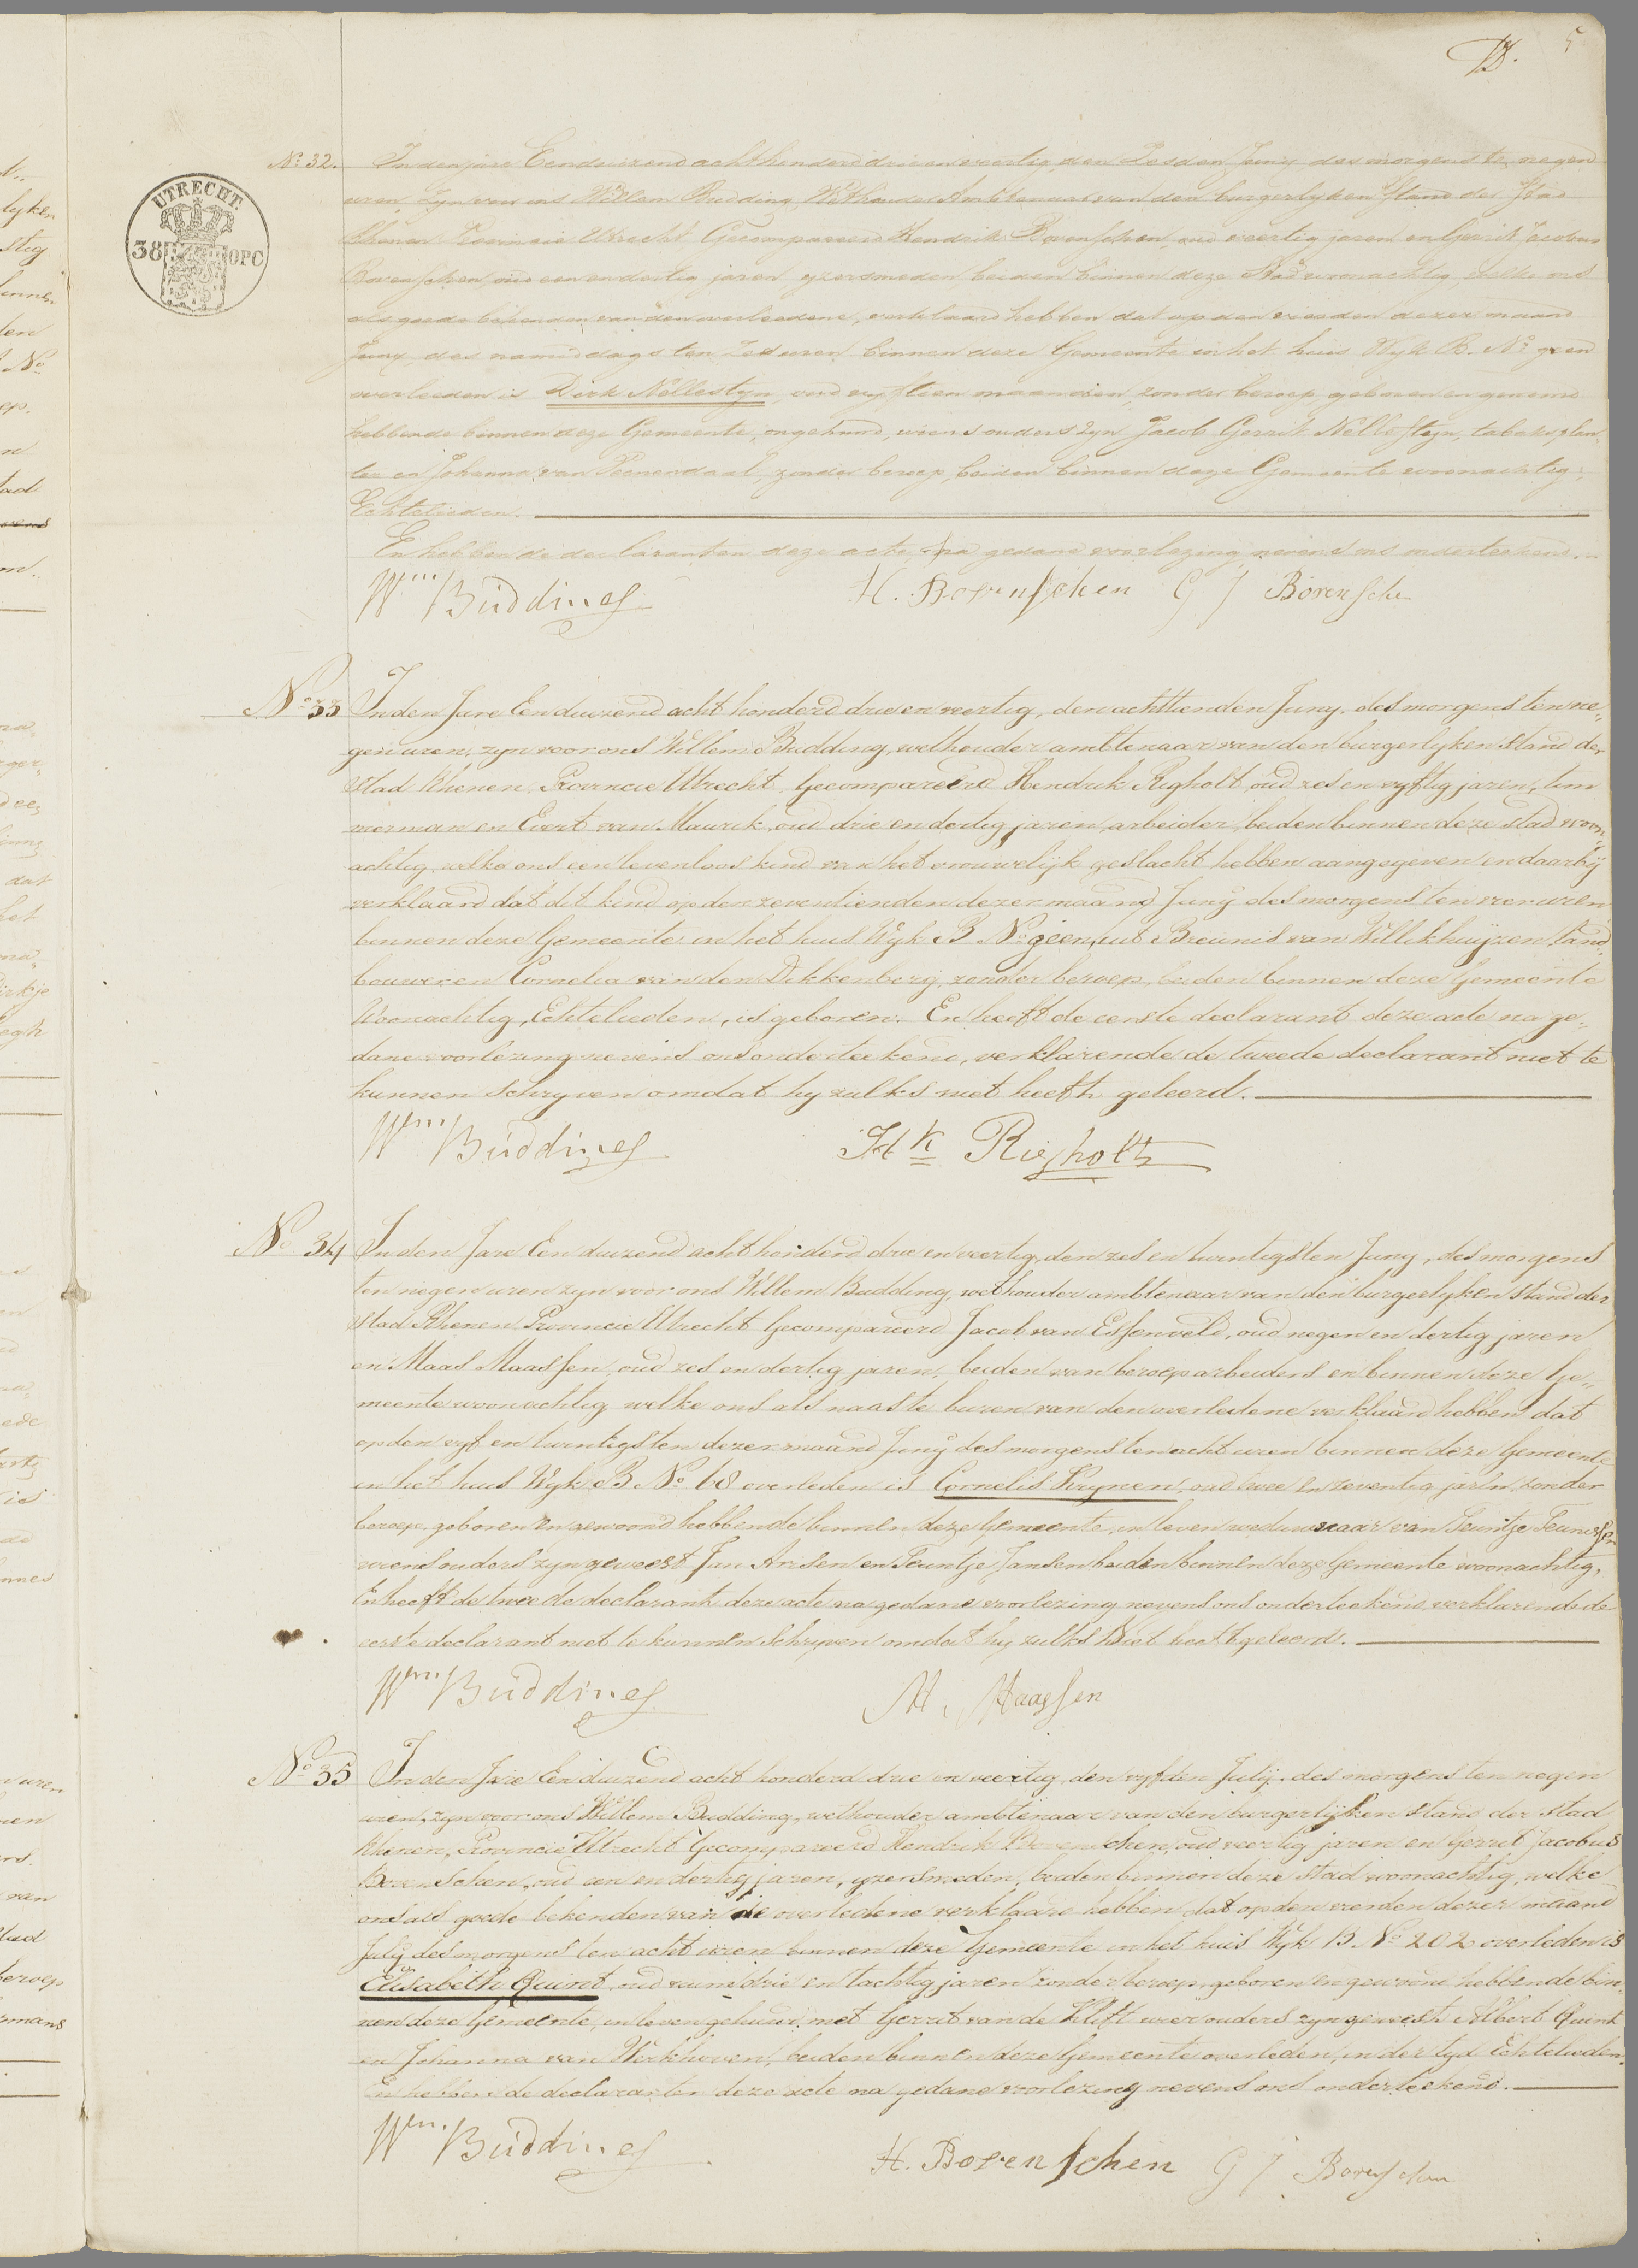 5
UTRECHT.
38 OPC
No. 32. In den jare Eenduizend acht honderd drie en veertig, den Zesden Juny, des morgens te negen
uren, Zyn voor ons Willem Budding, Wethouder Ambtenaar van den burgerlyken Stand der Stad
Rhenen Provincie Utrecht Gecompareerd Hendrik Bovenschen, oud veertig jaren en Gerrit Jacobus
Bovenschen, oud een en dertig jaren yzersmeden, beiden binnen deze Stad woonachtig, welke ons
als goede bekenden van den overledene, verklaard hebben dat op den vierden dezer maand
Juny des namiddags ten Zes uren binnen deze Gemeente in het huis Wyk B. No. geen
overleden is Dirk Nellestyn, oud vyftien maanden, zonder beroep, geboren en gewoond
hebbende binnen deze Gemeente, ongehuwd, wiens ouders zyn Jacob Gerrit Nellestyn, tabaksplan
ter en Johanna van Veenendaal, zonder beroep, beiden binnen deze Gemeente woonachtig,
Echtelieden.
En hebben de declaranten deze acte na gedane voorlezing nevens ons onderteekend.
Wm Budding H. Bovenschen G J Bovensche
No. 33 In den Jare Een duizend acht honderd drie en veertig, den achttienden Juny. des morgens ten ne„
gen uren, zyn voor ons Willem Budding, wethouder ambtenaar van den burgerlyken stand der
stad Rhenen, Provincie Utrecht, Gecompareerd Hendrik Righolt, oud zes en vyftig jaren, tim
merman en Evert van Maurik, oud drie en dertig jaren, arbeider, beiden binnen deze stad woon„
achtig, welke ons een levenloos kind van het vrouwelijk geslacht hebben aangegeven en daarby
verklaard dat dit kind op den zeventienden dezer maand Juny des morgens ten vier uren
binnen deze Gemeente in het huis Wyk B No. geen, uit Breunis van Willikhuijzen, land„
bouwer en Cornelia van den Dikkenberg, zonder beroep, beiden binnen deze Gemeente
Woonachtig, Echtelieden, is geboren. En heeft de eerste declarant deze acte na ge„
dane voorlezing nevens ons onderteekend, verklarende de tweede declarant niet te
kunnen schryven omdat hy zulks niet heeft geleerd.
Wm Budding Hk Righolt
No. 34 In den Jare Een duizend acht honderd drie en veertig, den zes en twintigsten Juny, des morgens
ten negen uren zyn voor ons Willem Budding, wethouder ambtenaar van den burgerlyken stand der
stad Rhenen Provincie Utrecht Gecompareerd Jacob van Essenveld, oud negen en dertig jaren
en Maas Maassen, oud zes en dertig jaren, beiden van beroep arbeiders en binnen deze Ge„
meente woonachtig welke ons als naaste buren van den overledene verklaard hebben dat
op den vyf en twintigsten dezer maand Juny des morgens ten acht uren binnen deze Gemeente
in het huis Wyk B No. 68 overleden is Cornelis Krynen, oud twee en zeventig jaren, zonder
beroep, geboren en gewoond hebbende binnen deze Gemeente, in leven weduwenaar van Teuntje Teunissen
wiens ouders zyn geweest Jan Arisen en Teuntje Jansen beiden binnen deze Gemeente woonachtig,
En heeft de tweede declarant deze acte na gedane voorlezing nevens ons onderteekend, verklarende de
eerste declarant niet te kunnen schryven omdat hy zulks niet heeft geleerd.
Wm Budding M. Maassen
No. 35 In den Jare Een duizend acht honderd drie en veertig, den vyfden July. des morgens ten negen
uren, zyn voor ons Willem Budding, wethouder ambtenaar van den burgerlyken stand der stad
Rhenen, Provincie Utrecht Gecompareerd Hendrik Bovenschen, oud veertig jaren en Gerrit Jacobus
Bovenschen, oud een en dertig jaren, yzersmeden, beiden binnen deze stad woonachtig, welke
ons als goede bekenden van de overledene verklaard hebben dat op den vierden dezer maand
July des morgens ten acht uren binnen deze Gemeente in het huis Wyk B No. 202 overleden is
Elisabeth Quint, oud ruim drie en tachtig jaren zonder beroep, geboren en gewoond hebbende bin„
nen deze Gemeente, in leven gehuwd met Gerrit van de Klift wier ouders zyn geweest Albert Quint
en Johanna van Werkhoven, beiden binnen deze Gemeente overleden, in der tyd Echtelieden.
En hebben de declaranten deze acte na gedane voorlezing nevens ons onderteekend.
Wm Budding H. Bovenschen G J Bovenschen